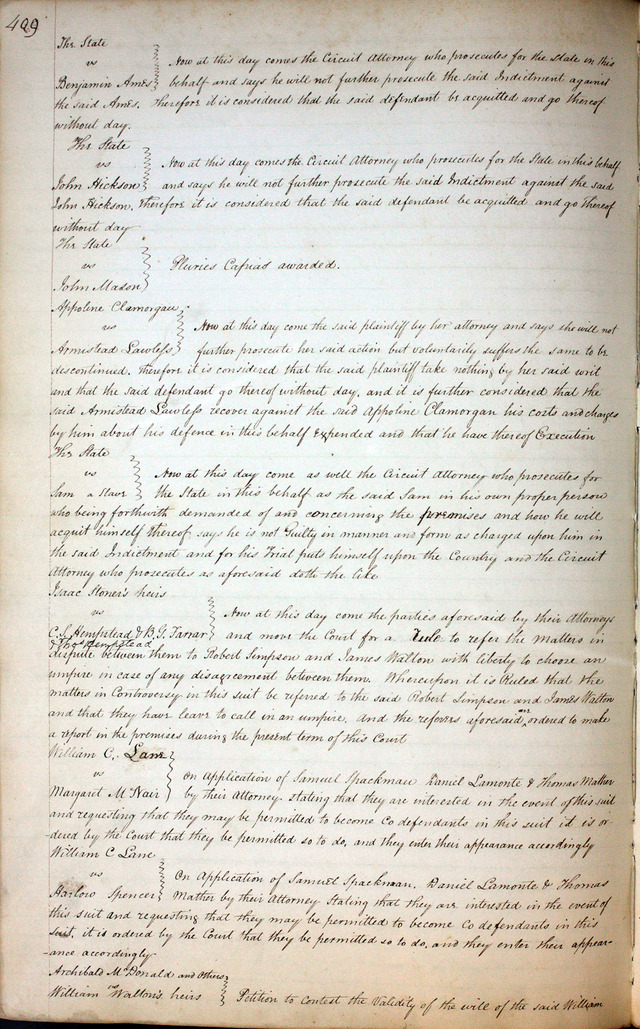 499
The State
vs
Now at this day comes the Circuit Attorney who prosecutes for the State in this
Benjamin Ames behalf and says he will not further prosecute the said Indictment against
the said Ames. Therefore it is considered that the said defendant be acquitted and go thereof
without day.
The State
vs Now at this day comes the Circuit Attorney who prosecutes for the State in this behalf
John Hickson and says he will not further prosecute the said Indictment against the said
John Hickson, therefore it is considered that the said defendant be acquitted and go thereof
without day
The State
vs Pluries Capias awarded.
John Mason
Appoline Clamorgan
vs Now at this day come the said plaintiff by her attorney and says she will not
Armistead Lawless further prosecute her said action but voluntarily suffers the same to be
discontinued. therefore it is considered that the said plaintiff take nothing by her said writ
and that the said defendant go thereof without day, and it is further considered that the
said Armistead Lawless recover against the said Appoline Clamorgan his costs and charges
by him about his defence in this behalf expended and that he have thereof Execution
The State
vs Now at this day come as well the Circuit Attorney who prosecutes for
Sam a Slave the State in this behalf as the said Sam in his own proper person
who being forthwith demanded of and concerning the premises and how he will
acquit himself thereof says he is not Guilty in manner and form as charged upon him in
the said Indictment and for his Trial puts himself upon the Country and the Circuit
Attorney who prosecutes as aforesaid doth the like
Isaac Stoner's heirs
vs Now at this day come the parties aforesaid by their Attorneys
C. S. Hempstead & B. G. Farrar and move the Court for a Rule to refer the matters in
& Thos Hempstead
dispute between them to Robert Simpson and James Walton with liberty to choose an
umpire in case of any disagreement between them. Whereupon it is Ruled that the
matters in Controversy in this suit be referred to the said Robert Simpson and James Walton
and that they have leave to call in an umpire. And the referees aforesaid are ordered to make
a report in the premises during the present term of this Court
William C. Lane
vs On Application of Samuel Spackman Daniel Lamonte & Thomas Mather
Margaret McNair by their Attorney stating that they are interested in the event of this suit
and requesting that they may be permitted to become Co defendants in this suit it is or-
-dered by the Court that they be permitted so to do, and they enter their appearance accordingly
William C Lane
vs On Application of Samuel Spackman, Daniel Lamonte & Thomas
Harlow Spencer Mather by their Attorney Stating that they are interested in the event of
this suit and requesting that they may be permitted to become Co defendants in this
suit, it is ordered by the Court that they be permitted so to do, and they enter their appear-
-ance accordingly
Archibald McDonald and others
vs
William Walton's heirs Petition to contest the Validity of the will of the said William